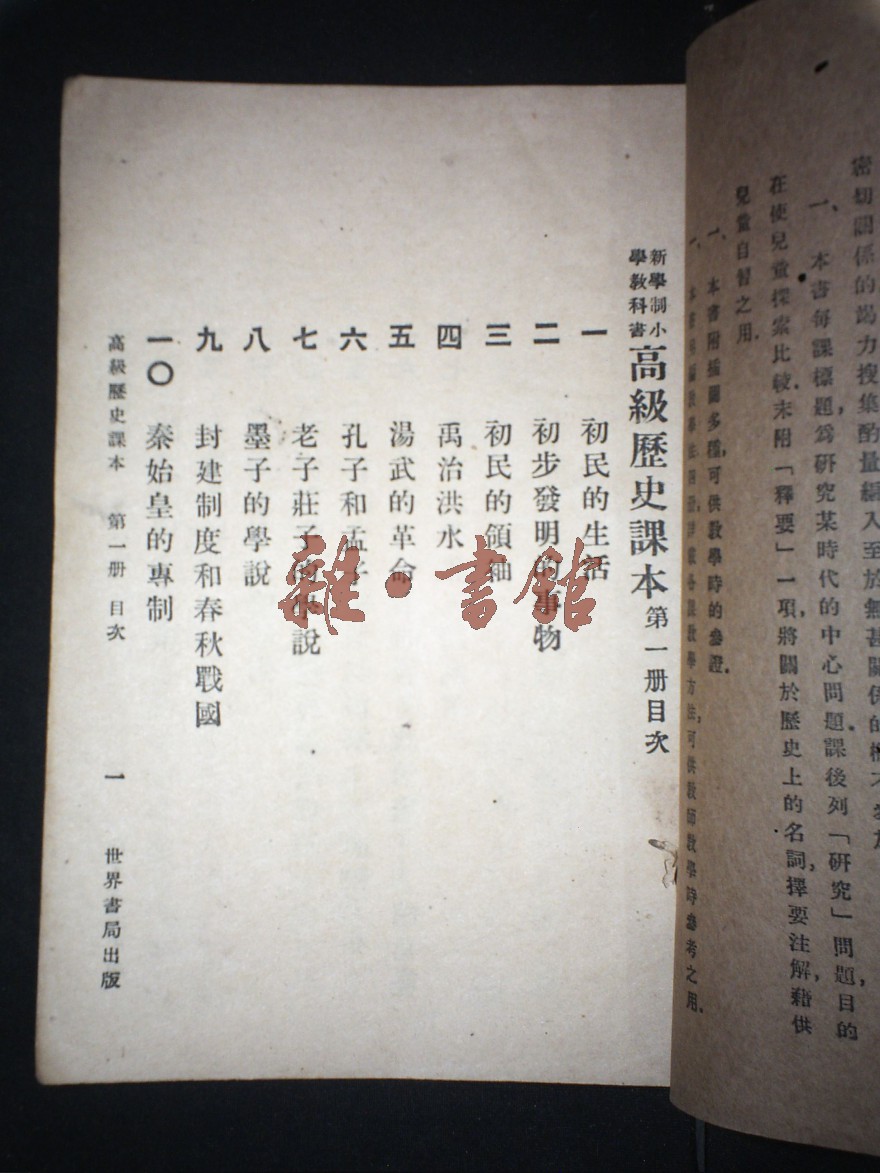 密切關係的竭力搜集酌量編入至於無甚關係的概不
一、本書每課標題，爲研究某時代的中心問題。課後列「研究」問題，目的
在使兒童探索比較。末附「釋要」一項，將關於歷史上的名詞，擇要注解，藉供
兒童自習之用。
一、本書附插圖多種，可供教學時的參證。
教學方法，可供教師教學時參考之用。
新學制小學教科書
高級歷史課本 第一册目次
一 初民的生活
二 初步發明的事物
三 初民的領袖
四 禹治洪水
五 湯武的革命
六 孔子和孟子
七 老子莊子的學說
八 墨子的學說
九 封建制度和春秋戰國
一〇 秦始皇的專制
高級歷史課本 第一册 目次 一 世界書局出版
雜·書館